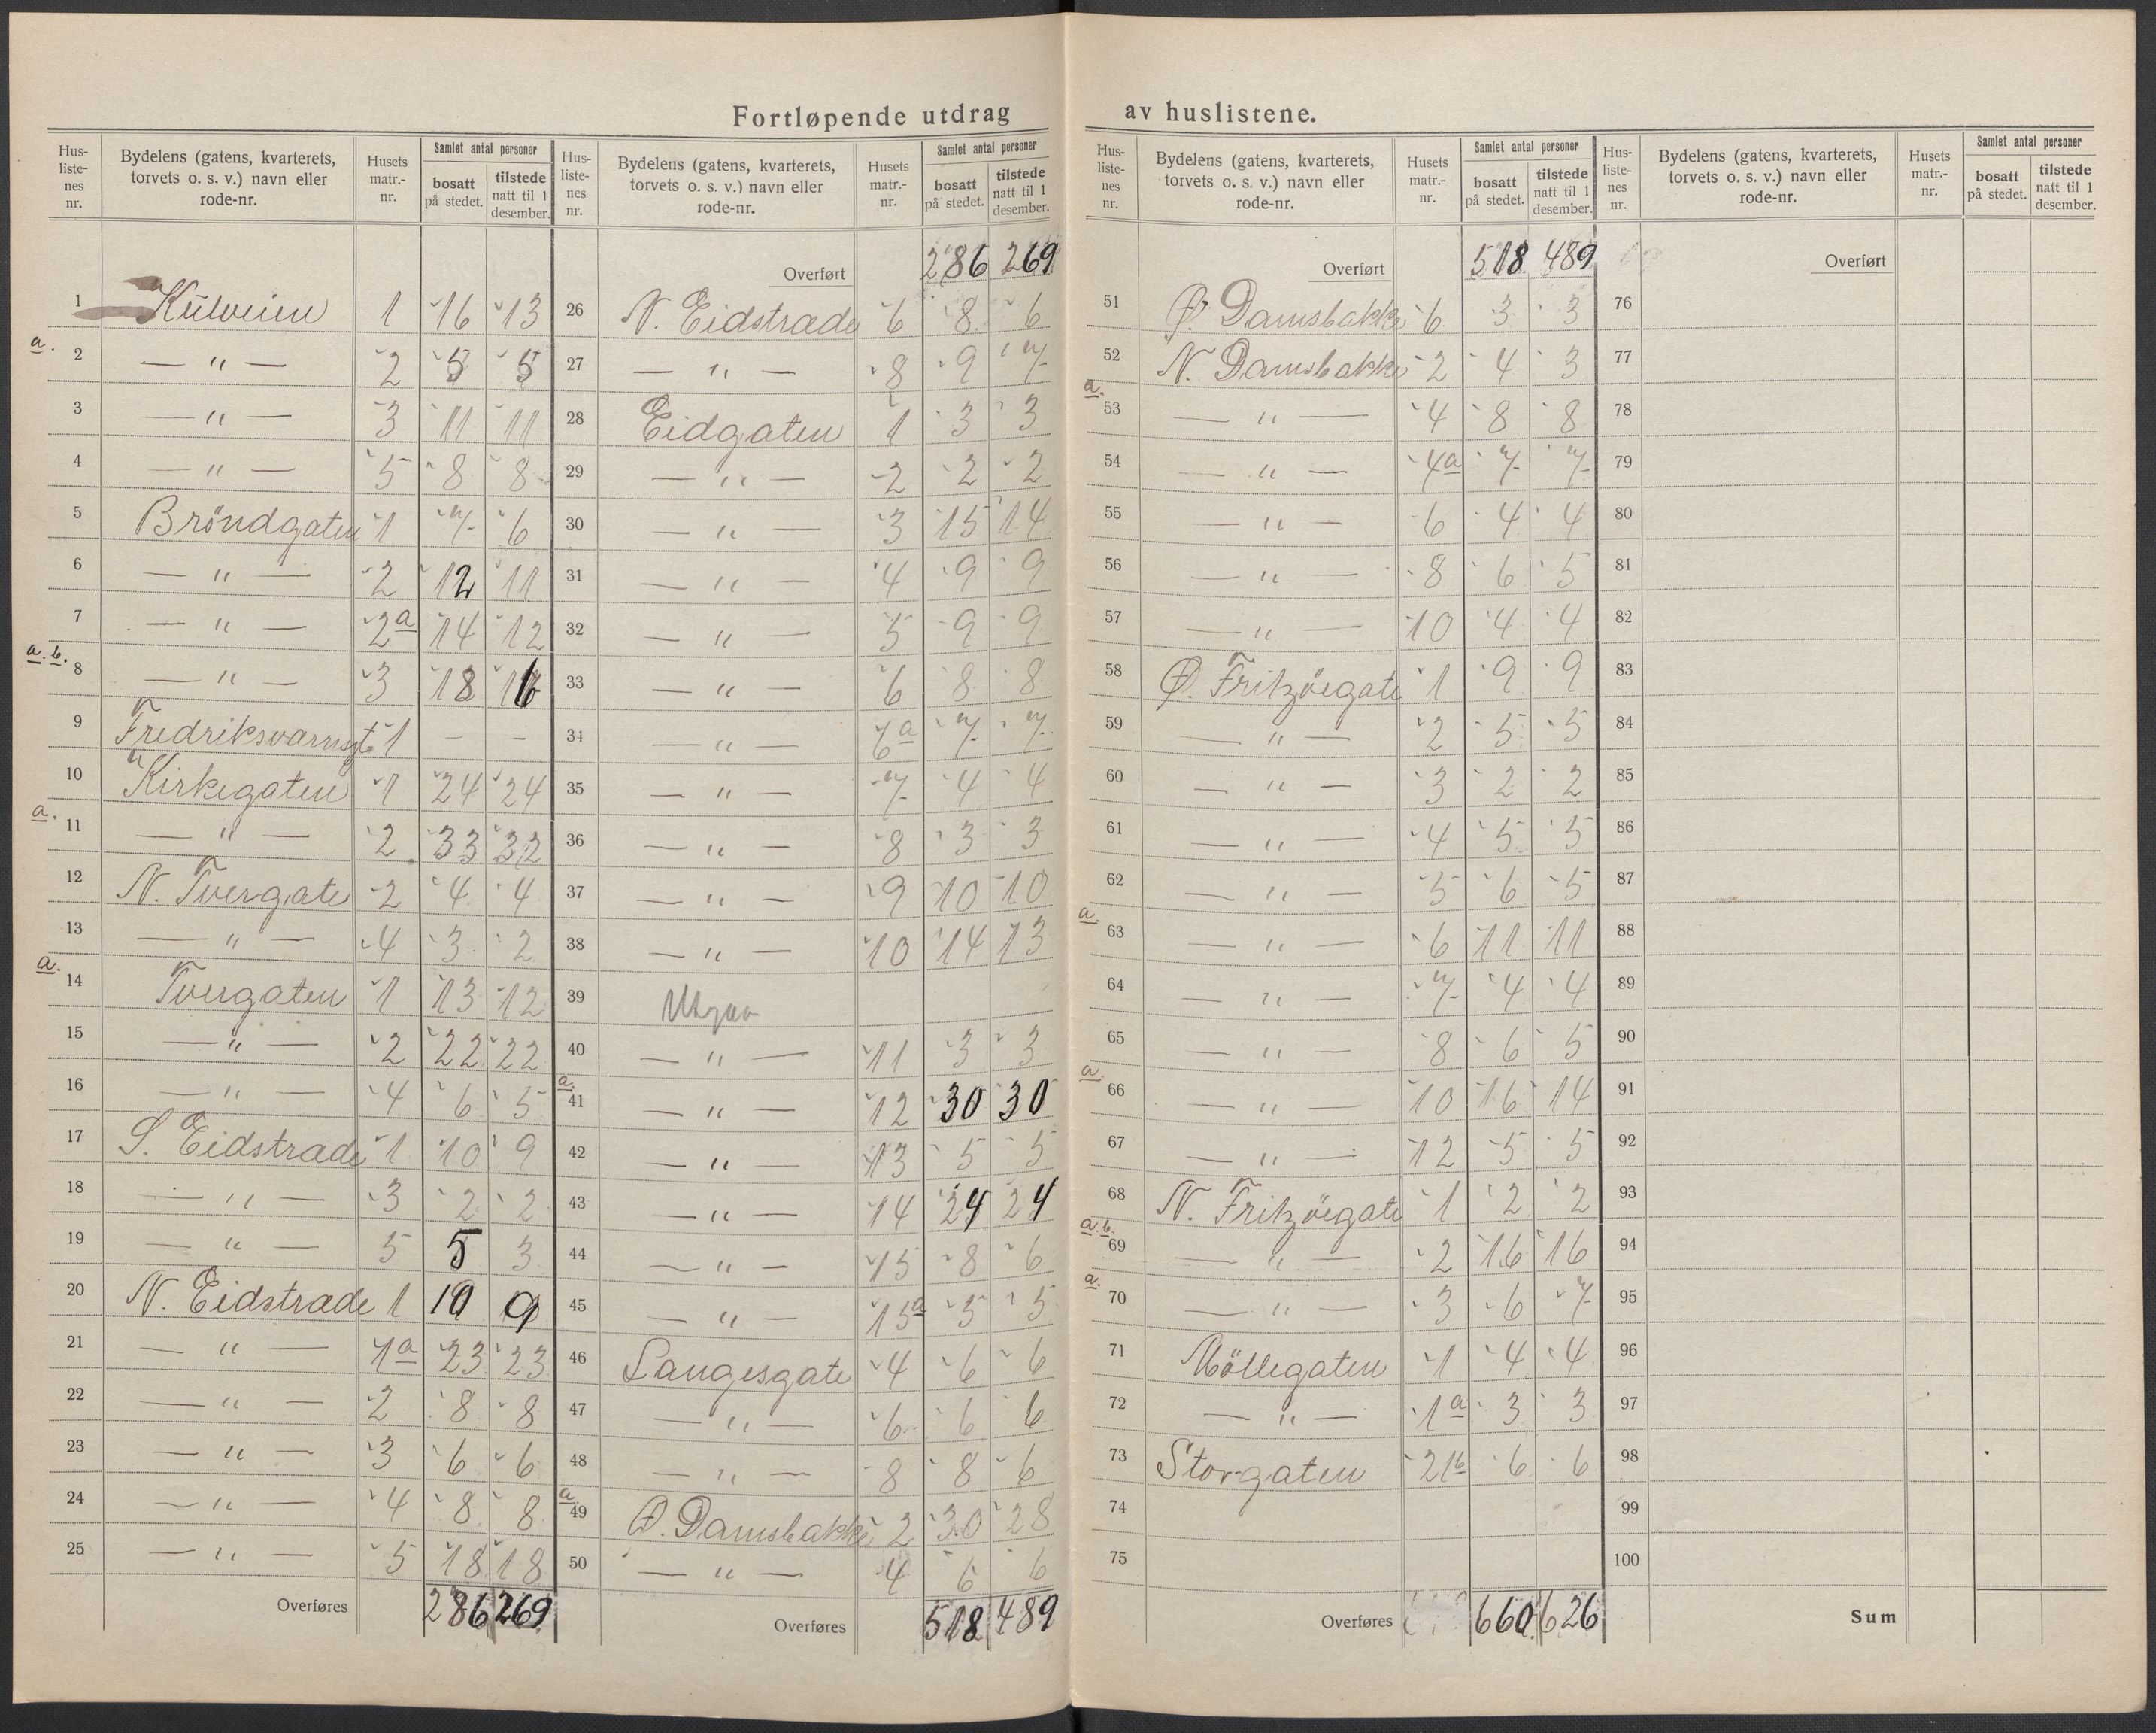 Fortløpende utdrag av huslistene.
Hus-listenes nr. | Bydelens (gatens, kvarterets, torvets o. s. v.) navn eller rode-nr. | Husets matr.-nr. | Samlet antal personer bosatt på stedet. | tilstede natt til 1 desember.
1 Kulveien 1 16 13
a. 2 — " — 2 5 5
3 — " — 3 11 11
4 — " — 5 8 8
5 Bröndgaten 1 7 6
6 — " — 2 12 11
7 — " — 2a 14 12
a. b. 8 — " — 3 18 16
9 Fredriksvärnsgt. 1 — —
10 Kirkegaten 1 24 24
a. 11 — " — 2 33 32
12 N. Tvergate 2 4 4
13 — " — 4 3 2
a. 14 Tvergaten 1 13 12
15 — " — 2 22 22
16 — " — 4 6 5
17 S. Eidstrade 1 10 9
18 — " — 3 2 2
19 — " — 5 5 3
20 N. Eidstrade 1 10 9
21 — " — 1a 23 23
22 — " — 2 8 8
23 — " — 3 6 6
24 — " — 4 8 8
25 — " — 5 18 18
Overføres 286 269
Hus-listenes nr. | Bydelens (gatens, kvarterets, torvets o. s. v.) navn eller rode-nr. | Husets matr.-nr. | Samlet antal personer bosatt på stedet. | tilstede natt til 1 desember.
Overført 286 269
26 N. Eidstrade 6 8 6
27 — " — 8 9 7
28 Eidgaten 1 3 3
29 — " — 2 2 2
30 — " — 3 15 14
31 — " — 4 9 9
32 — " — 5 9 9
33 — " — 6 8 8
34 — " — 6a 7 7
35 — " — 7 4 4
36 — " — 8 3 3
37 — " — 9 10 10
38 — " — 10 14 13
39 Utgaar
40 — " — 11 3 3
a. 41 — " — 12 30 30
42 — " — 13 5 5
43 — " — 14 24 24
44 — " — 15 8 6
45 — " — 15a 5 5
46 Langesgate 4 6 6
47 — " — 6 6 6
48 — " — 8 8 6
a. 49 Ø. Damsbakke 2 30 28
50 — " — 4 6 6
Overføres 518 489
Hus-listenes nr. | Bydelens (gatens, kvarterets, torvets o. s. v.) navn eller rode-nr. | Husets matr.-nr. | Samlet antal personer bosatt på stedet. | tilstede natt til 1 desember.
Overført 518 489
51 Ø. Damsbakke 6 3 3
52 N. Damsbakke 2 4 3
a. 53 — " — 4 8 8
54 — " — 4a 7 7
55 — " — 6 4 4
56 — " — 8 6 5
57 — " — 10 4 4
58 Ø. Fritzöegate 1 9 9
59 — " — 2 5 5
60 — " — 3 2 2
61 — " — 4 5 5
62 — " — 5 6 5
a. 63 — " — 6 11 11
64 — " — 7 4 4
65 — " — 8 6 5
a. 66 — " — 10 16 14
67 — " — 12 5 5
68 N. Fritzöegate 1 2 2
a. b. 69 — " — 2 16 16
a. 70 — " — 3 6 7
71 Möllegaten 1 4 4
72 — " — 1a 3 3
73 Storgaten 21b 6 6
74
75
Overføres 660 626
Hus-listenes nr. | Bydelens (gatens, kvarterets, torvets o. s. v.) navn eller rode-nr. | Husets matr.-nr. | Samlet antal personer bosatt på stedet. | tilstede natt til 1 desember.
Overført
76
77
78
79
80
81
82
83
84
85
86
87
88
89
90
91
92
93
94
95
96
97
98
99
100
Sum